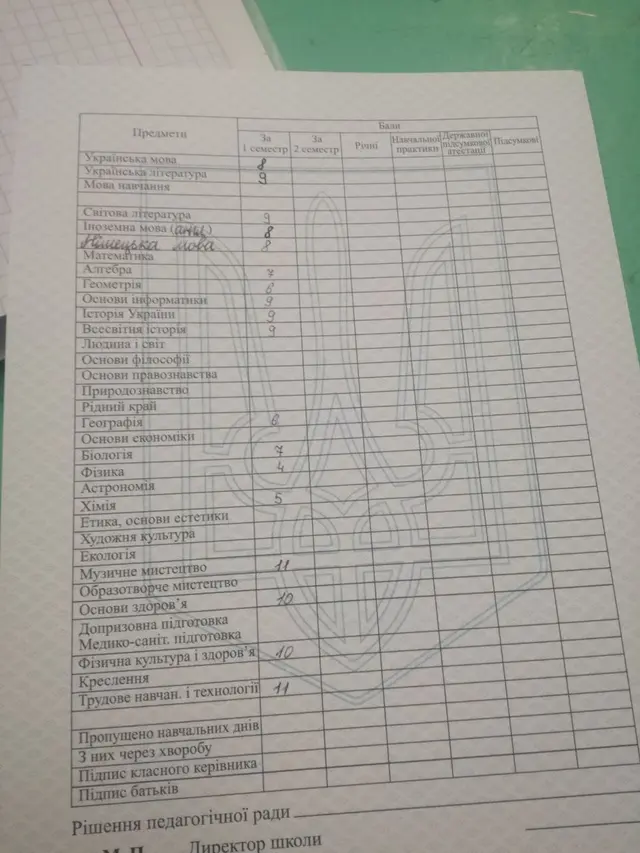 Предмети Бали
За 1 семестр За 2 семестр Річні Навчальної практики Державної підсумкової атестації Підсумкові
Українська мова 8
Українська література 9
Мова навчання
Світова література 9
Іноземна мова (англ.) 8
Німецька мова 8
Математика
Алгебра 7
Геометрія 6
Основи інформатики 9
Історія України 9
Всесвітня історія 9
Людина і світ
Основи філософії
Основи правознавства
Природознавство
Рідний край
Географія 6
Основи економіки
Біологія 7
Фізика 4
Астрономія
Хімія 5
Етика, основи естетики
Художня культура
Екологія
Музичне мистецтво 11
Образотворче мистецтво
Основи здоров'я 10
Допризовна підготовка
Медико-саніт. підготовка
Фізична культура і здоров'я 10
Креслення
Трудове навчан. і технології 11
Пропущено навчальних днів
З них через хворобу
Підпис класного керівника
Підпис батьків
Рішення педагогічної ради
М. П. Директор школи